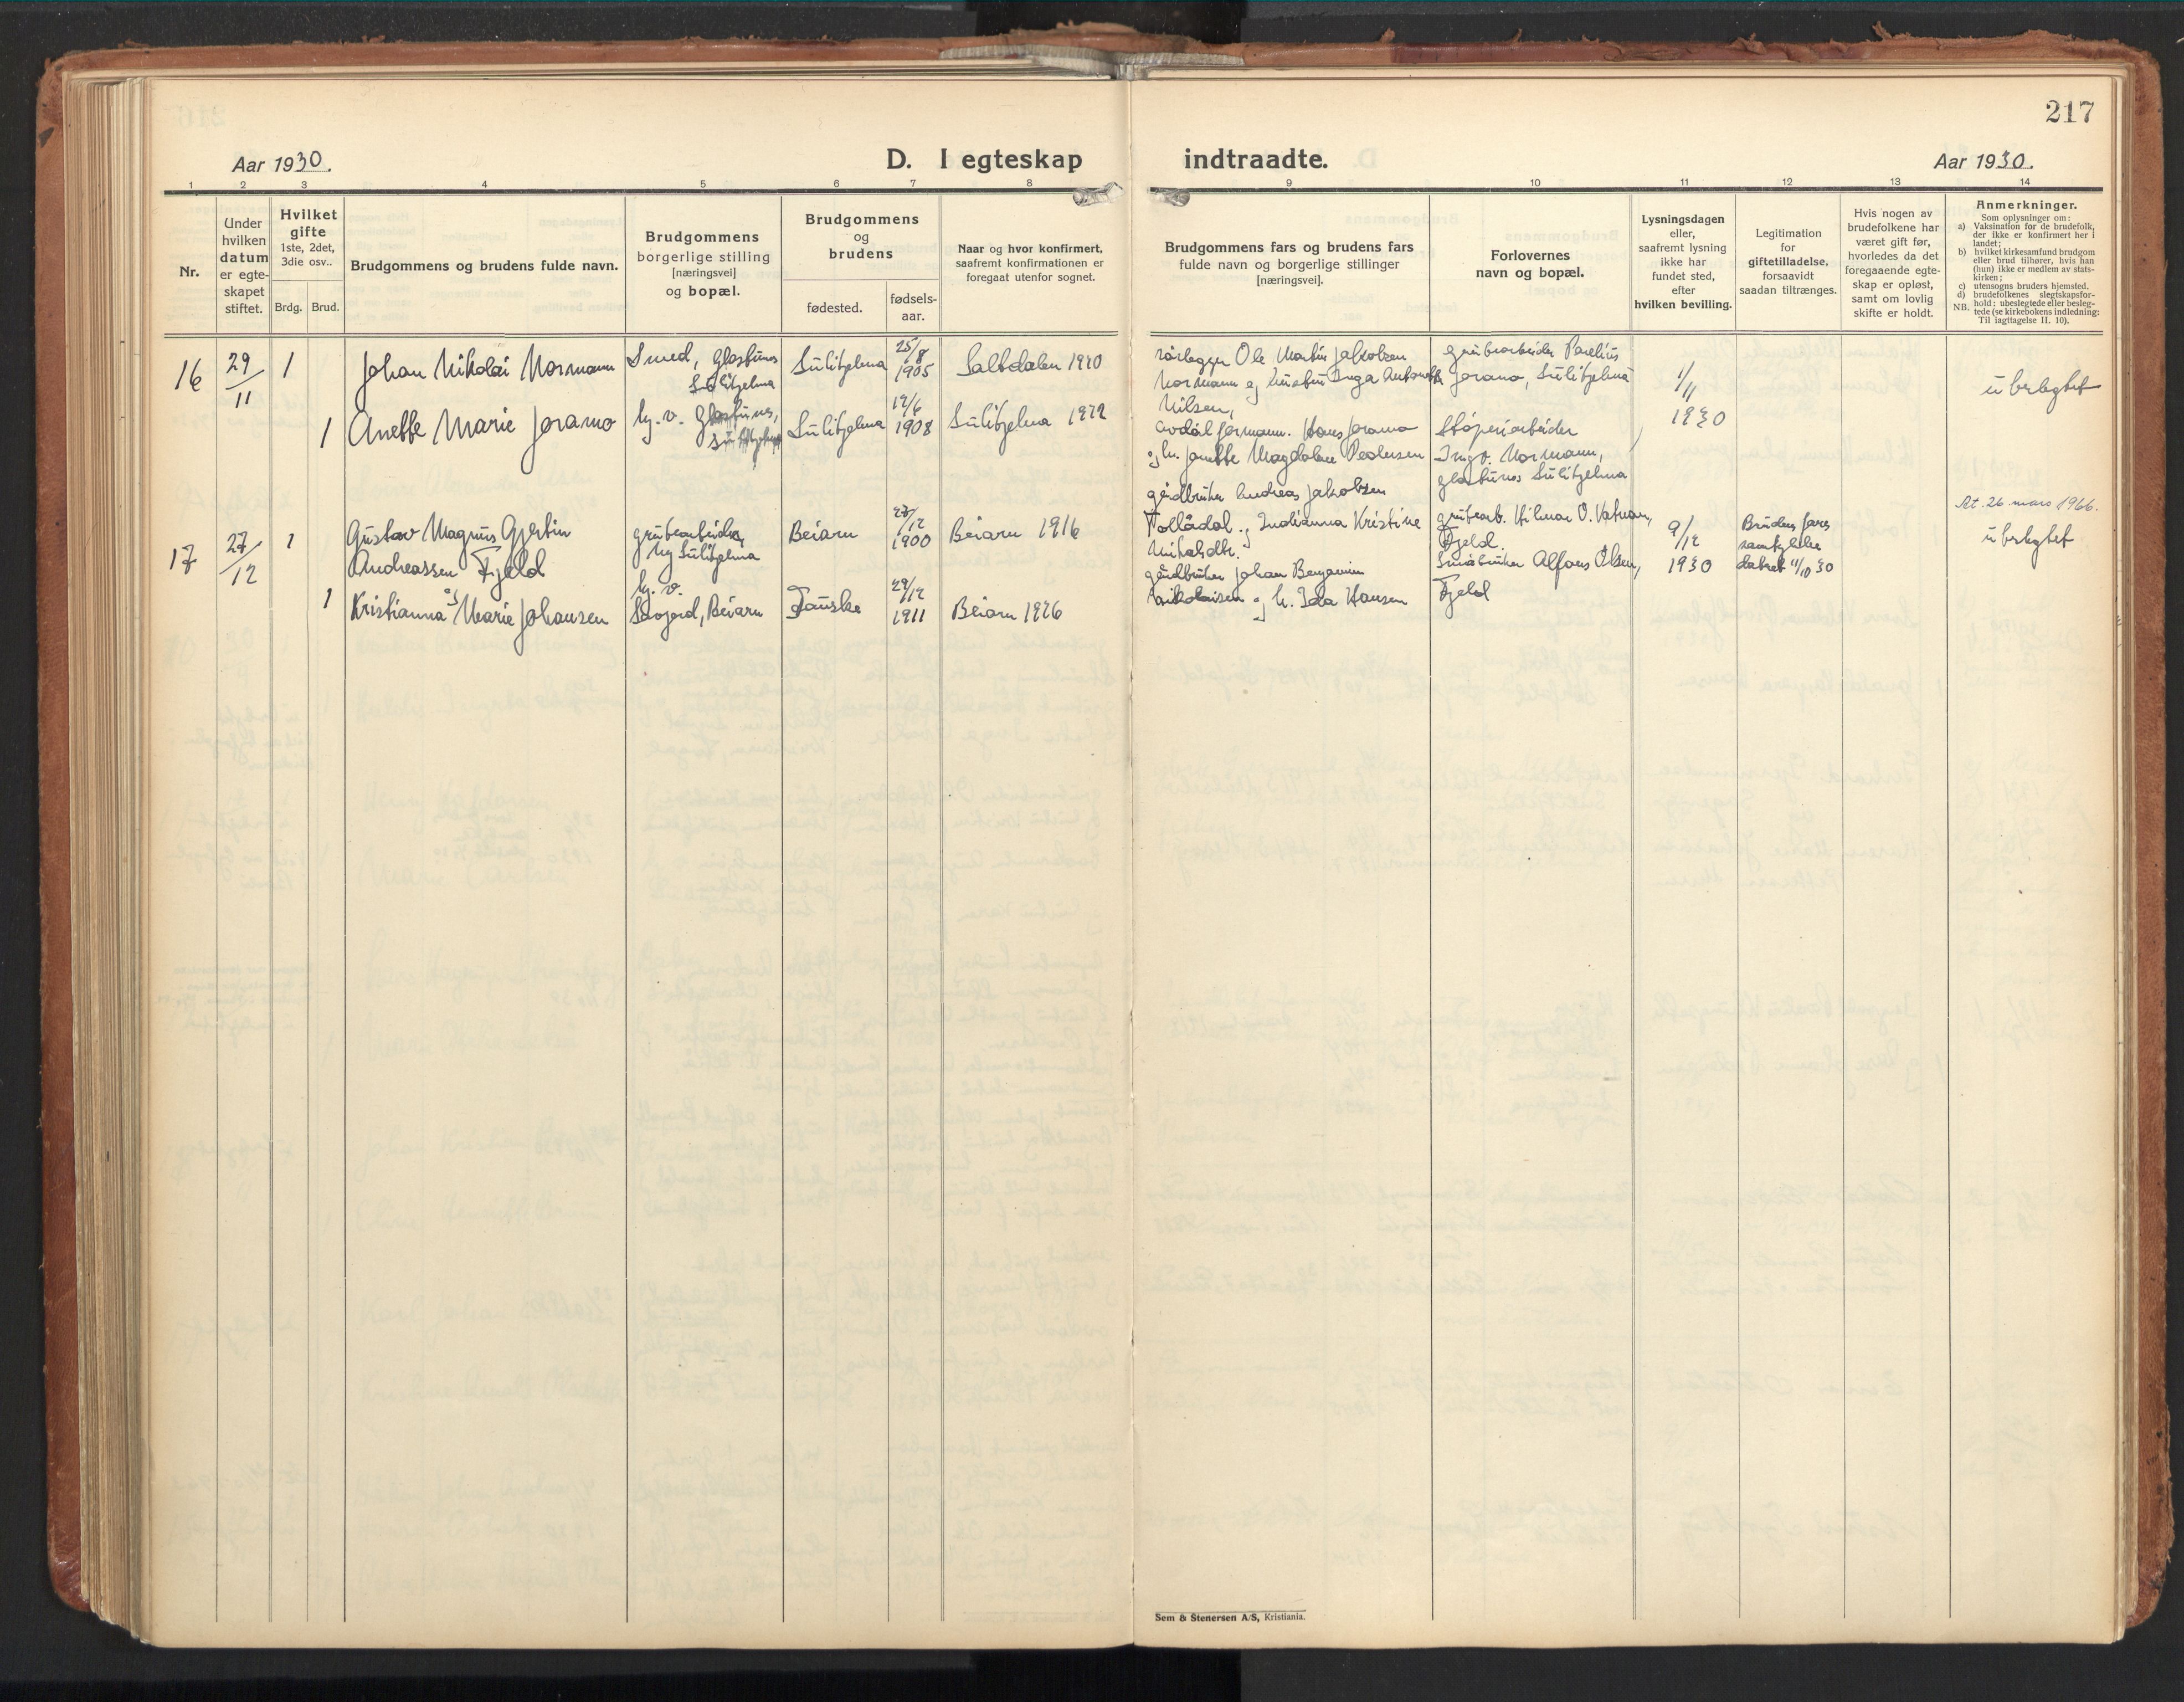 217
Aar 1930.
D. I egteskap
indtraadte.
Aar 1930.
1 2 3 4 5 6 7 8 9 10 11 12 13 14
Nr.
Under
hvilken
datum
er egte-
skapet
stiftet.
Hvilket
gifte
1ste, 2det,
3die osv..
Brdg. Brud.
Brudgommens og brudens fulde navn.
Brudgommens
borgerlige stilling
[næringsvei]
og bopæl.
Brudgommens
og
brudens
fødested.
fødsels-
aar.
Naar og hvor konfirmert,
saafremt konfirmationen er
foregaat utenfor sognet.
Brudgommens fars og brudens fars
fulde navn og borgerlige stillinger
[næringsvei].
Forlovernes
navn og bopæl.
Lysningsdagen
eller,
saafremt lysning
ikke har
fundet sted,
efter
hvilken bevilling.
Legitimation
for
giftetilladelse,
forsaavidt
saadan tiltrænges.
Hvis nogen av
brudefolkene har
været gift før,
hvorledes da det
foregaaende egte-
skap er opløst,
samt om lovlig
skifte er holdt.
Anmerkninger.
Som oplysninger om:
a) Vaksination for de brudefolk,
der ikke er konfirmert her i
landet;
b) hvilket kirkesamfund brudgom
eller brud tilhører, hvis han
(hun) ikke er medlem av stats-
kirken;
c) utensogns bruders hjemsted.
d) brudefolkenes slegtskapsfor-
hold: ubeslegtede eller besleg-
NB. tede (se kirkebokens indledning:
Til iagttagelse II. 10).
16
29/11
1
Johan Nikolai Normann
Smed, Glastunes
Sulitjelma
Sulitjelma
25/8
1905
Saltdalen 1920
rørlegger Ole Martin Jakobsen
Normann og hustru Inga
Nilsen,
grubearbeider Parelius
Joramo, Sulitjelma
1/11
1930
ubeslegtet
1
Anette Marie Joramo
hj. v. Glastunes,
Sulitjelma
Sulitjelma
12/6
1908
Sulitjelma 1922
avdøl formann. Hans Joramo
og h. Janette Magdalene Pedersen
Støperiarbeider
Ingv. Normann,
Glastunes Sulitjelma
17
27/12
1
Gustav Magnus Gjertin
Andreassen Fjeld
grubearbeider,
Ny Sulitjelma
Beiarn
27/12
1900
Beiarn 1916
gårdbruker Andreas Jakobsen
Tollådal og Indianna Kristine
grubearb. Hilmar O. Vatnan,
Fjeld.
9/12
1930
Brudens fars
samtykke
datert 11/10 30
At. 26 mars 1966.
ubeslegtet
1
og
Kristianna Marie Johansen
hj. v.
Beiarn
Fauske
29/12
1911
Beiarn 1926
gårdbruker Johan Benjamin
Nikolaisen og h. Ida Hansen
Småbruker Alfons Olsen,
Fjeld
Sem & Stenersen A/S, Kristiania.